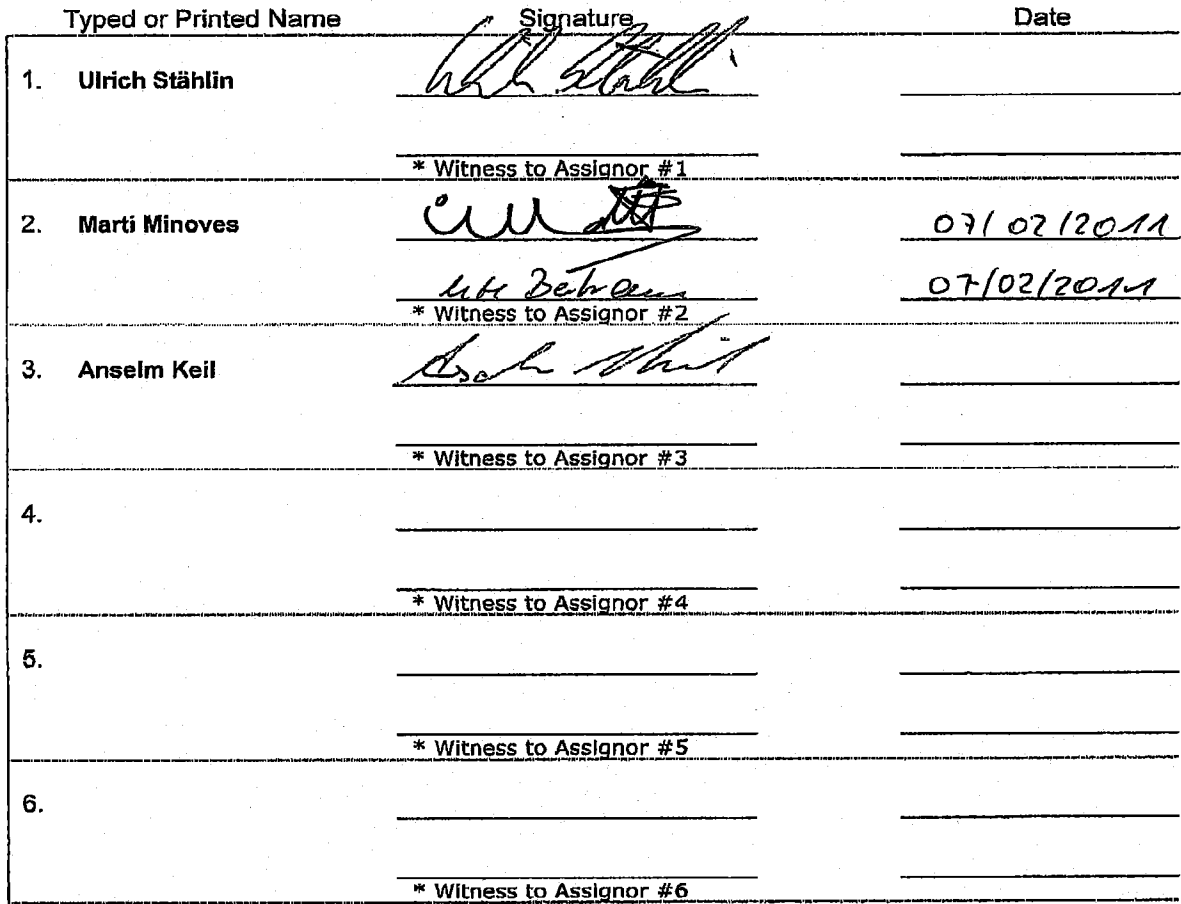 Typed or Printed Name Signature Date
1. Ulrich Stählin
* Witness to Assignor #1
2. Marti Minoves 07/02/2011
07/02/2011
* Witness to Assignor #2
3. Anselm Keil
* Witness to Assignor #3
4.
* Witness to Assignor #4
5.
* Witness to Assignor #5
6.
* Witness to Assignor #6